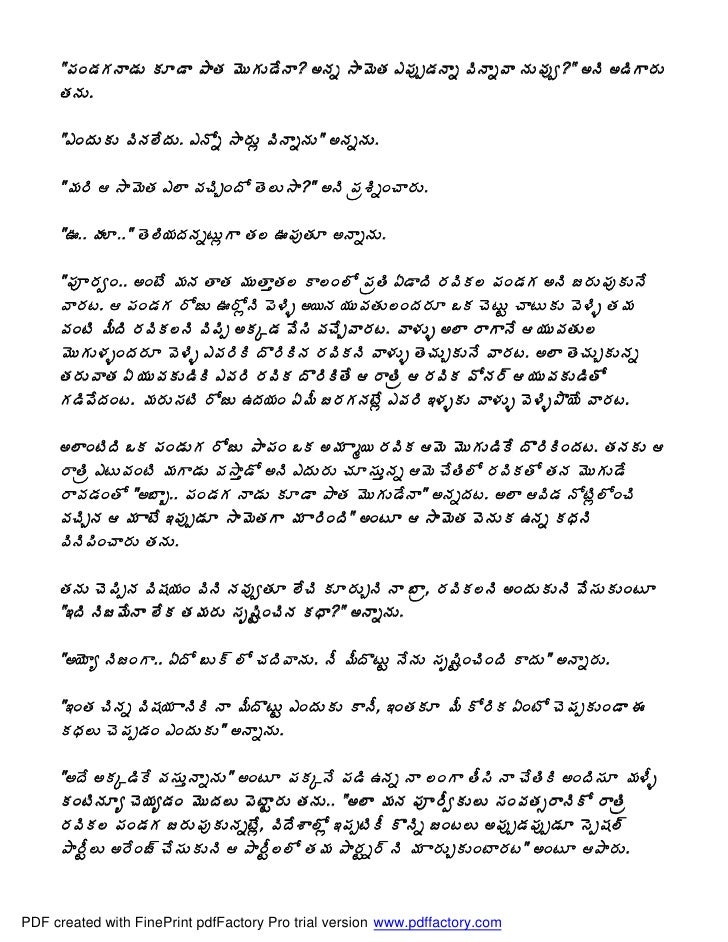 "పండగనాడు కూడా పాత మొగుడేనా? అన్న సామెత ఎప్పుడన్నా విన్నావా నువ్వు?" అని అడిగారు
తను.
"ఎందుకు వినలేదు. ఎన్నో సార్లు విన్నాను" అన్నను.
"మరి ఆ సామెత ఎలా వచ్చిందో తెలుసా?" అని ప్రశ్నించారు.
"ఊ.. హూ.." తెలియదన్నట్లుగా తల ఊపుతూ అన్నాను.
"పూర్వం.. అంటే మన తాత ముత్తాతల కాలంలో ప్రతి ఏడాది రవికల పండగ అని జరుపుకునే
వారట. ఆ పండగ రోజు ఊర్లోని పెళ్ళి అయిన యువతులందరూ ఒక చెట్టు చాటుకు వెళ్ళి తమ
వంటి మీది రవికలని విప్పి అక్కడ వేసి వచ్చేవారట. వాళ్ళు అలా రాగానే ఆ యువతుల
మొగుళ్ళందరూ వెళ్ళి ఎవరికి దొరికిన రవికని వాళ్ళు తెచ్చుకునే వారట. అలా తెచ్చుకున్న
తరువాత ఏ యువకుడికి ఎవరి రవిక దొరికితే ఆ రాత్రి ఆ రవిక వోనర్ ఆ యువకుడితో
గడిపేదంట. మరుసటి రోజు ఉదయం ఏమీ జరగనట్లే ఎవరి ఇళ్ళకు వాళ్ళు వెళ్ళిపొయే వారట.
అలాంటిది ఒక పండుగ రోజు పాపం ఒక అమ్మాయి రవిక ఆమె మొగుడికే దొరికిందట. తనకు ఆ
రాత్రి ఎటువంటి మగాడు వస్తాడో అని ఎదురు చూస్తున్న ఆమె చేతిలో రవికతో తన మొగుడే
రావడంతో "అబ్బా.. పండగ నాడు కూడా పాత మొగుడేనా" అన్నదట. అలా ఆవిడ నోట్లిలోంచి
వచ్చిన ఆ మాటే ఇప్పుడూ సామెతగా మారింది" అంటూ ఆ సామెత వెనుక ఉన్న కధని
వినిపించారు తను.
తను చెప్పిన విషయం విని నవ్వుతూ లేచి కూర్చుని నా బ్రా, రవికలని అందుకుని వేసుకుంటూ
"ఇది నిజమేనా లేక తమరు సృష్టించిన కధా?" అన్నాను.
"అయ్యో నిజంగా.. ఏదో బుక్ లో చదివాను. నీ మీదొట్టు నేను సృష్టించింది కాదు" అన్నారు.
"ఇంత చిన్న విషయానికి నా మీదొట్టు ఎందుకు కానీ, ఇంతకూ మీ కోరిక ఏంటో చెప్పకుండా ఈ
కధలు చెప్పడం ఎందుకు" అన్నాను.
"అదే అక్కడికే వస్తున్నాను" అంటూ పక్కనే పడి ఉన్న నా లంగా తీసి నా చేతికి అందిసూ మళ్ళీ
కంటిన్యూ చెయ్యడం మొదలు పెట్టారు తను.. "అలా మన పూర్వీకులు సంవత్సరానికో రాత్రి
రవికల పండగ జరుపుకున్నట్లే, విదేశాల్లో ఇప్పటికీ కొన్ని జంటలు అప్పుడప్పుడూ స్పెషల్
పార్టీలు అరేంజ్ చేసుకుని ఆ పార్టీలలో తమ పార్ట్నర్ ని మార్చుకుంటారట" అంటూ ఆపారు.
PDF created with FinePrint pdfFactory Pro trial version www.pdffactory.com